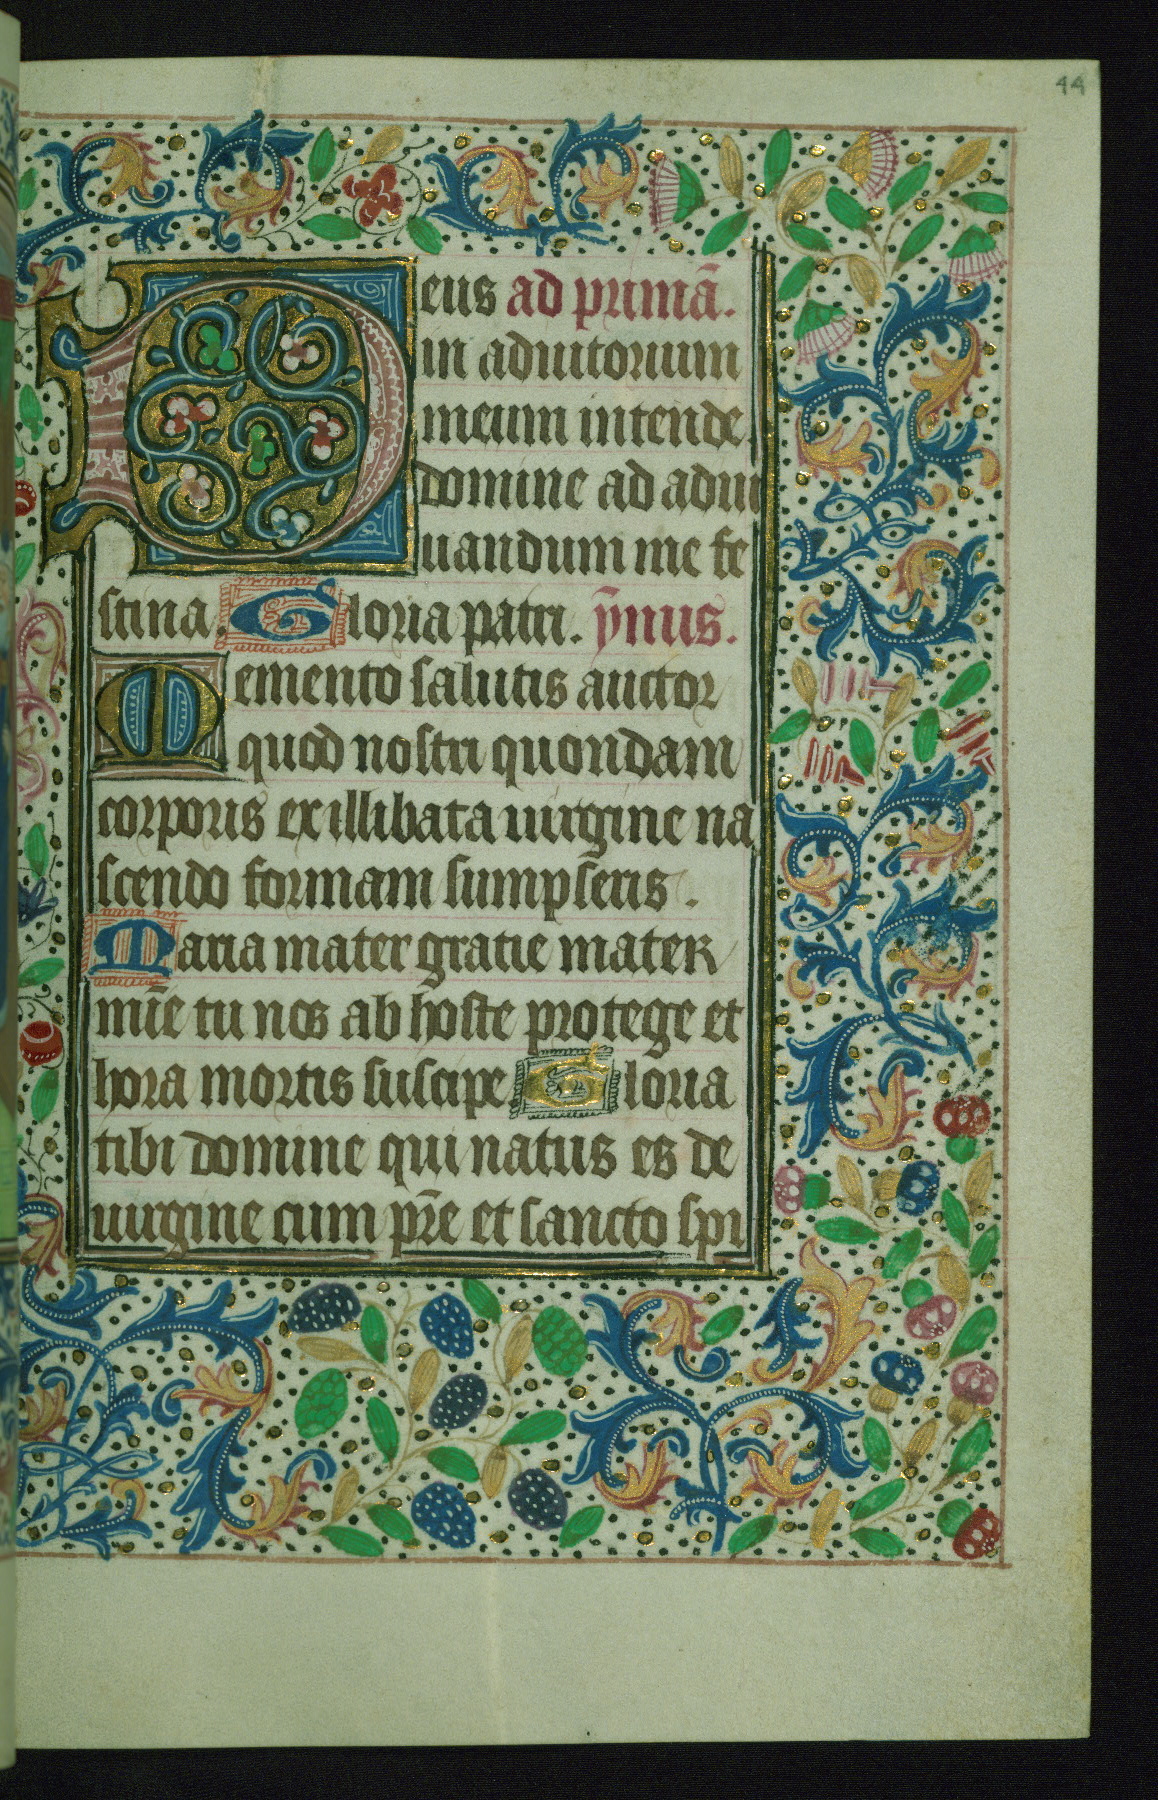 44
Deus ad primā.
in adiutorium
meum intende.
domine ad adiu
uandum me fe
stina. Gloria patri. ȳnus.
Memento salutis auctor
quod nostri quondam
corporis ex illibata uirgine na
scendo formam sumpseris.
Maria mater gratie mater
mīe tu nos ab hoste protege et
hora mortis suscipe. Gloria
tibi domine qui natus es de
uirgine cum pr̄e et sancto spi